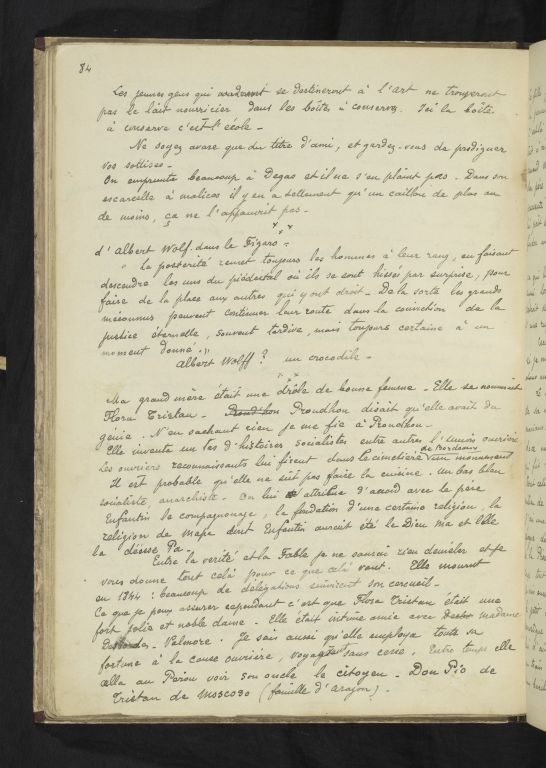 84
Les jeunes gens qui se destineront à l'art ne trouveront
pas le lait nourricier dans les boîtes à conserves. Ici la boîte
à conserve c'est l'école -
Ne soyez avare que du titre d'ami, et gardez-vous de prodiguer
vos sottises -
On emprunte beaucoup à Degas et il ne s'en plaint pas - Dans son
escarcelle à malices il y en a tellement qu'un caillou de plus ou
de moins, ça ne l'appauvrit pas -
x x x
d'Albert Wolf. dans le Figaro =
" La postérité remet toujours les hommes à leur rang, en faisant
descendre les uns du piédestal où ils se sont hissés par surprise, pour
faire de la place aux autres qui y ont droit - De la sorte les grands
méconnus peuvent continuer leur route dans la conviction de la
justice éternelle, souvent tardive, mais toujours certaine à un
moment donné. "
Albert Wolff ? un crocodile -
Ma grand mère était une drôle de bonne femme - Elle se nommait
Flora Tristan - Proud'hon Proudhon disait qu'elle avait du
génie. N'en sachant rien je me fie à Proudhon -
Elle inventa un tas d'histoires socialistes entre autres l'Union ouvrière
Les ouvriers reconnaissants lui firent dans le cimetière de Bordeaux un monument
Il est probable qu'elle ne sût pas faire la cuisine - Un bas bleu
socialiste, anarchiste - On lui attribue d'accord avec le père
Enfantin le compagnonage, la fondation d'une certaine religion, la
religion de Mapa dont Enfantin aurait été le Dieu Ma et Elle
la déesse Pa
Entre la vérité et la Fable je ne saurai rien démêler et je
vous donne tout celà pour ce que celà vaut. Elle mourut
en 1844 : beaucoup de délégations suivirent son cercueil -
Ce que je peux assurer cependant c'est que Flora Tristan était une
fort jolie et noble dame - Elle était intime amie avec madame
Desbordes - Valmore. Je sais aussi qu'elle employa toute sa
fortune à la cause ouvrière, voyageant sans cesse, Entre temps elle
alla au Pérou voir son oncle le citoyen - Don Pio de
Tristan de Moscoso (famille d'Aragon).